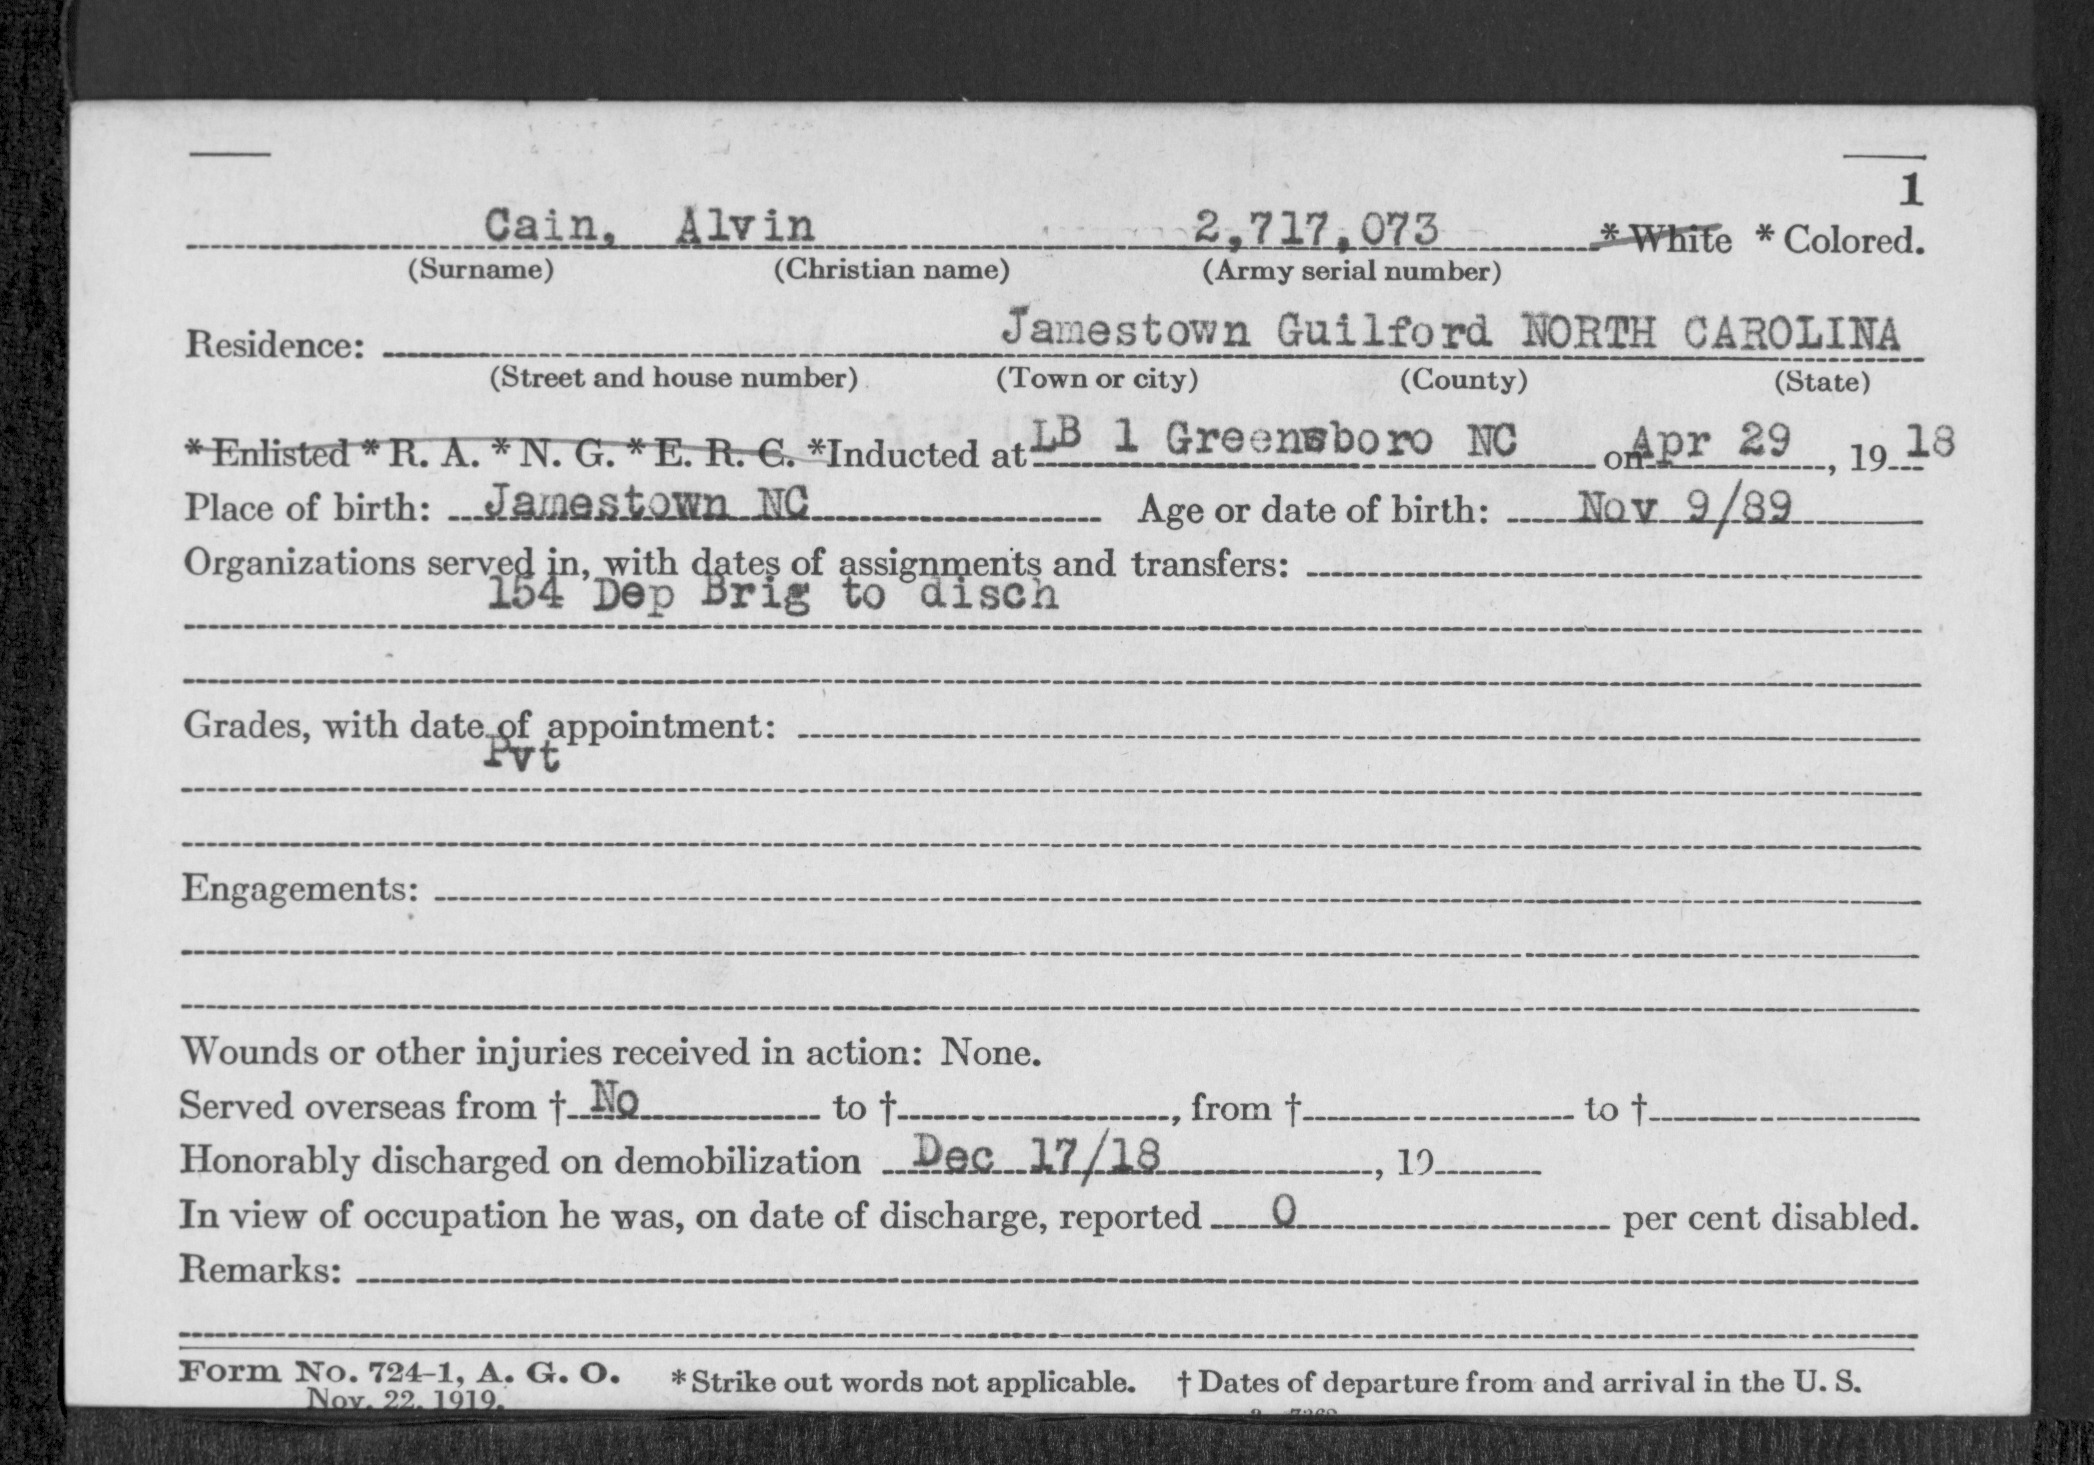 1
Cain, Alvin 2,717,073 * White * Colored.
(Surname) (Christian name) (Army serial number)
Residence: Jamestown Guilford NORTH CAROLINA
(Street and house number) (Town or city) (County) (State)
* Enlisted * R. A. * N. G. * E. R. C. *Inducted at LB 1 Greensboro NC on Apr 29, 19 18
Place of birth: Jamestown NC Age or date of birth: Nov 9/89
Organizations served in, with dates of assignments and transfers:
154 Dep Brig to disch
Grades, with date of appointment:
Pvt
Engagements:
Wounds or other injuries received in action: None.
Served overseas from † No to †, from † to †
Honorably discharged on demobilization Dec 17/18, 19
In view of occupation he was, on date of discharge, reported 0 per cent disabled.
Remarks:
Form No. 724-1, A. G. O. * Strike out words not applicable. † Dates of departure from and arrival in the U. S.
Nov. 22, 1919.